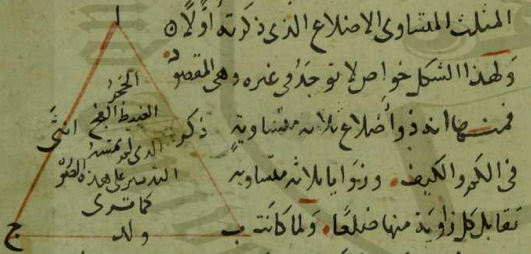 المثلث المتساوى الاضلاع الذى ذكرته أولًا
ولهذا الشكل خواص لا توجد فى غيره وهى المقصود
فمنها انه ذو أضلاع ثلاثة متساوية
فى الكم والكيف وزوايا ثلاثة متساوية
تقابل كل زاوية منها ضلعًا ولما كانت
ا
الحجر
الغبيط
ذكر
انثى
الذى لم
على هذه
كما ترى
ولد
ب
ج